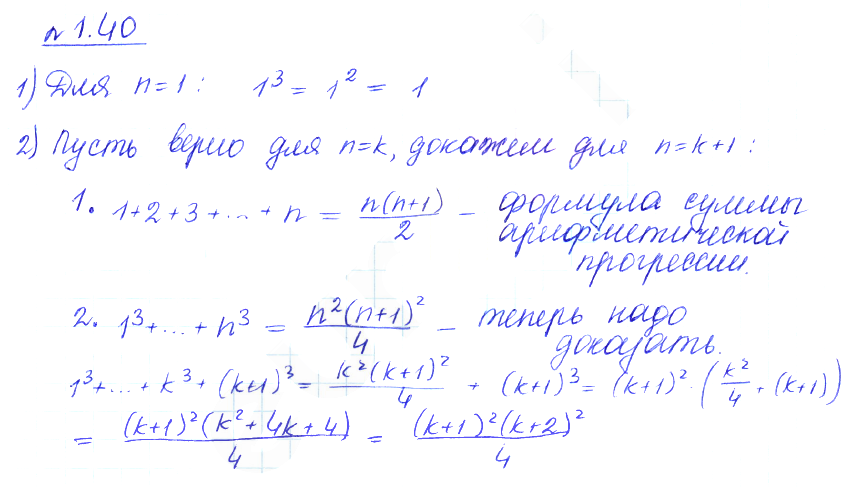 № 1.40
1) Для n=1: 1³ = 1² = 1
2) Пусть верно для n=k, докажем для n=k+1:
1. 1+2+3+...+n = n(n+1)/2 – формула суммы
арифметической
прогрессии.
2. 1³+...+n³ = n²(n+1)²/4 – теперь надо
доказать.
1³+...+k³+(k+1)³ = k²(k+1)²/4 + (k+1)³ = (k+1)²·(k²/4+(k+1))
= (k+1)²(k²+4k+4)/4 = (k+1)²(k+2)²/4